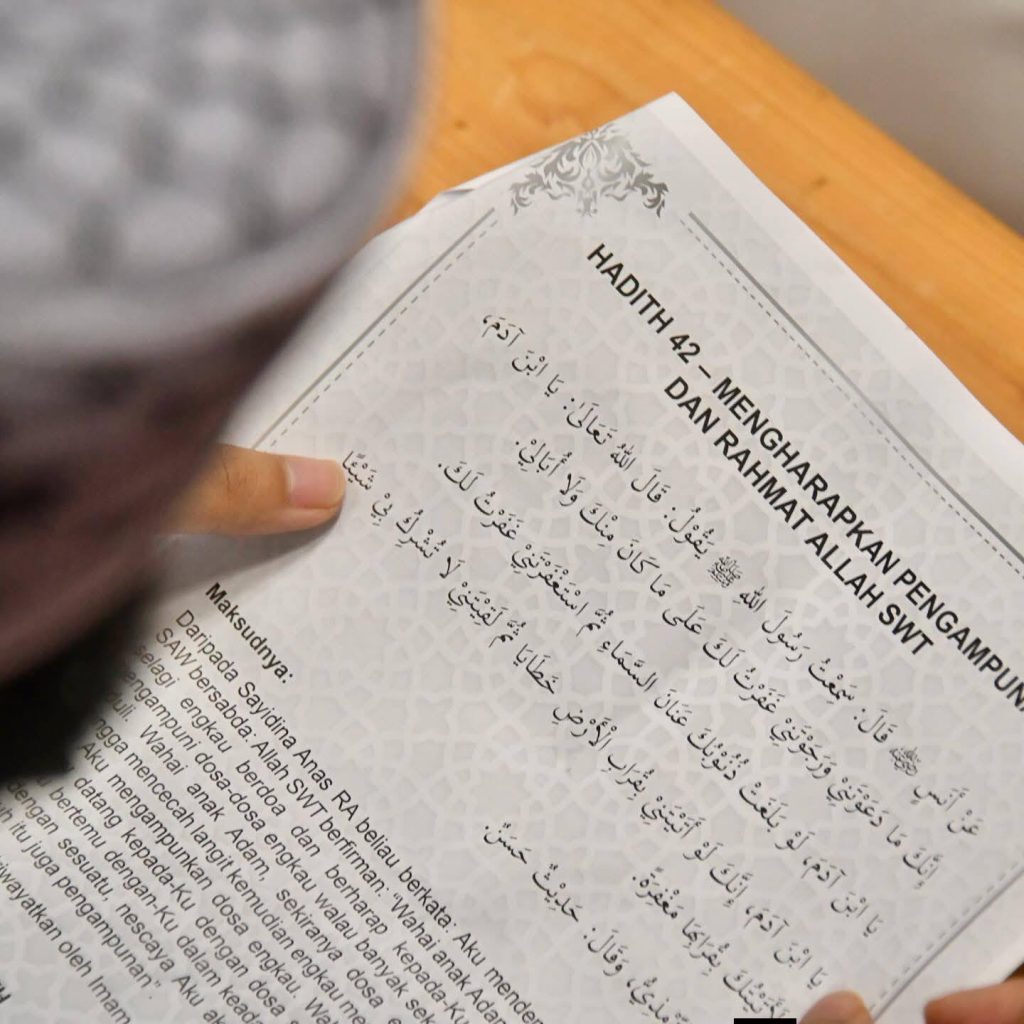 HADITH 42 – MENGHARAPKAN PENGAMPUNA
DAN RAHMAT ALLAH SWT
عَنْ أَنَسٍ ﷺ قَالَ: سَمِعْتُ رَسُولَ اللهِ ﷺ يَقُولُ: قَالَ اللهُ تَعَالَى: يَا ابْنَ آدَمَ،
إِنَّكَ مَا دَعَوْتَنِيْ وَرَجَوْتَنِيْ غَفَرْتُ لَكَ عَلَى مَا كَانَ مِنْكَ وَلَا أُبَالِيْ.
يَا ابْنَ آدَمَ، لَوْ بَلَغَتْ ذُنُوْبُكَ عَنَانَ السَّمَاءِ ثُمَّ اسْتَغْفَرْتَنِيْ غَفَرْتُ لَكَ.
يَا ابْنَ آدَمَ، إِنَّكَ لَوْ أَتَيْتَنِيْ بِقُرَابِ الْأَرْضِ خَطَايَا ثُمَّ لَقِيْتَنِيْ لَا تُشْرِكُ بِيْ شَيْئًا
بِقُرَابِهَا مَغْفِرَةً.
وَقَالَ: حَدِيْثٌ حَسَنٌ.
Maksudnya:
Daripada Sayidina Anas RA beliau berkata: Aku menden
SAW bersabda: Allah SWT berfirman: "Wahai anak Adam
selagi engkau berdoa dan berharap kepada-Ku
engampuni dosa-dosa engkau walau banyak sek
duli. Wahai anak Adam, sekiranya dosa e
ngga mencecah langit kemudian engkau me
Aku mengampunkan dosa engkau. Wah
datang kepada-Ku dengan dosa s
bertemu dengan-Ku dalam kead
dengan sesuatu, nescaya Aku
itu juga pengampunan".
iwayatkan oleh Imam